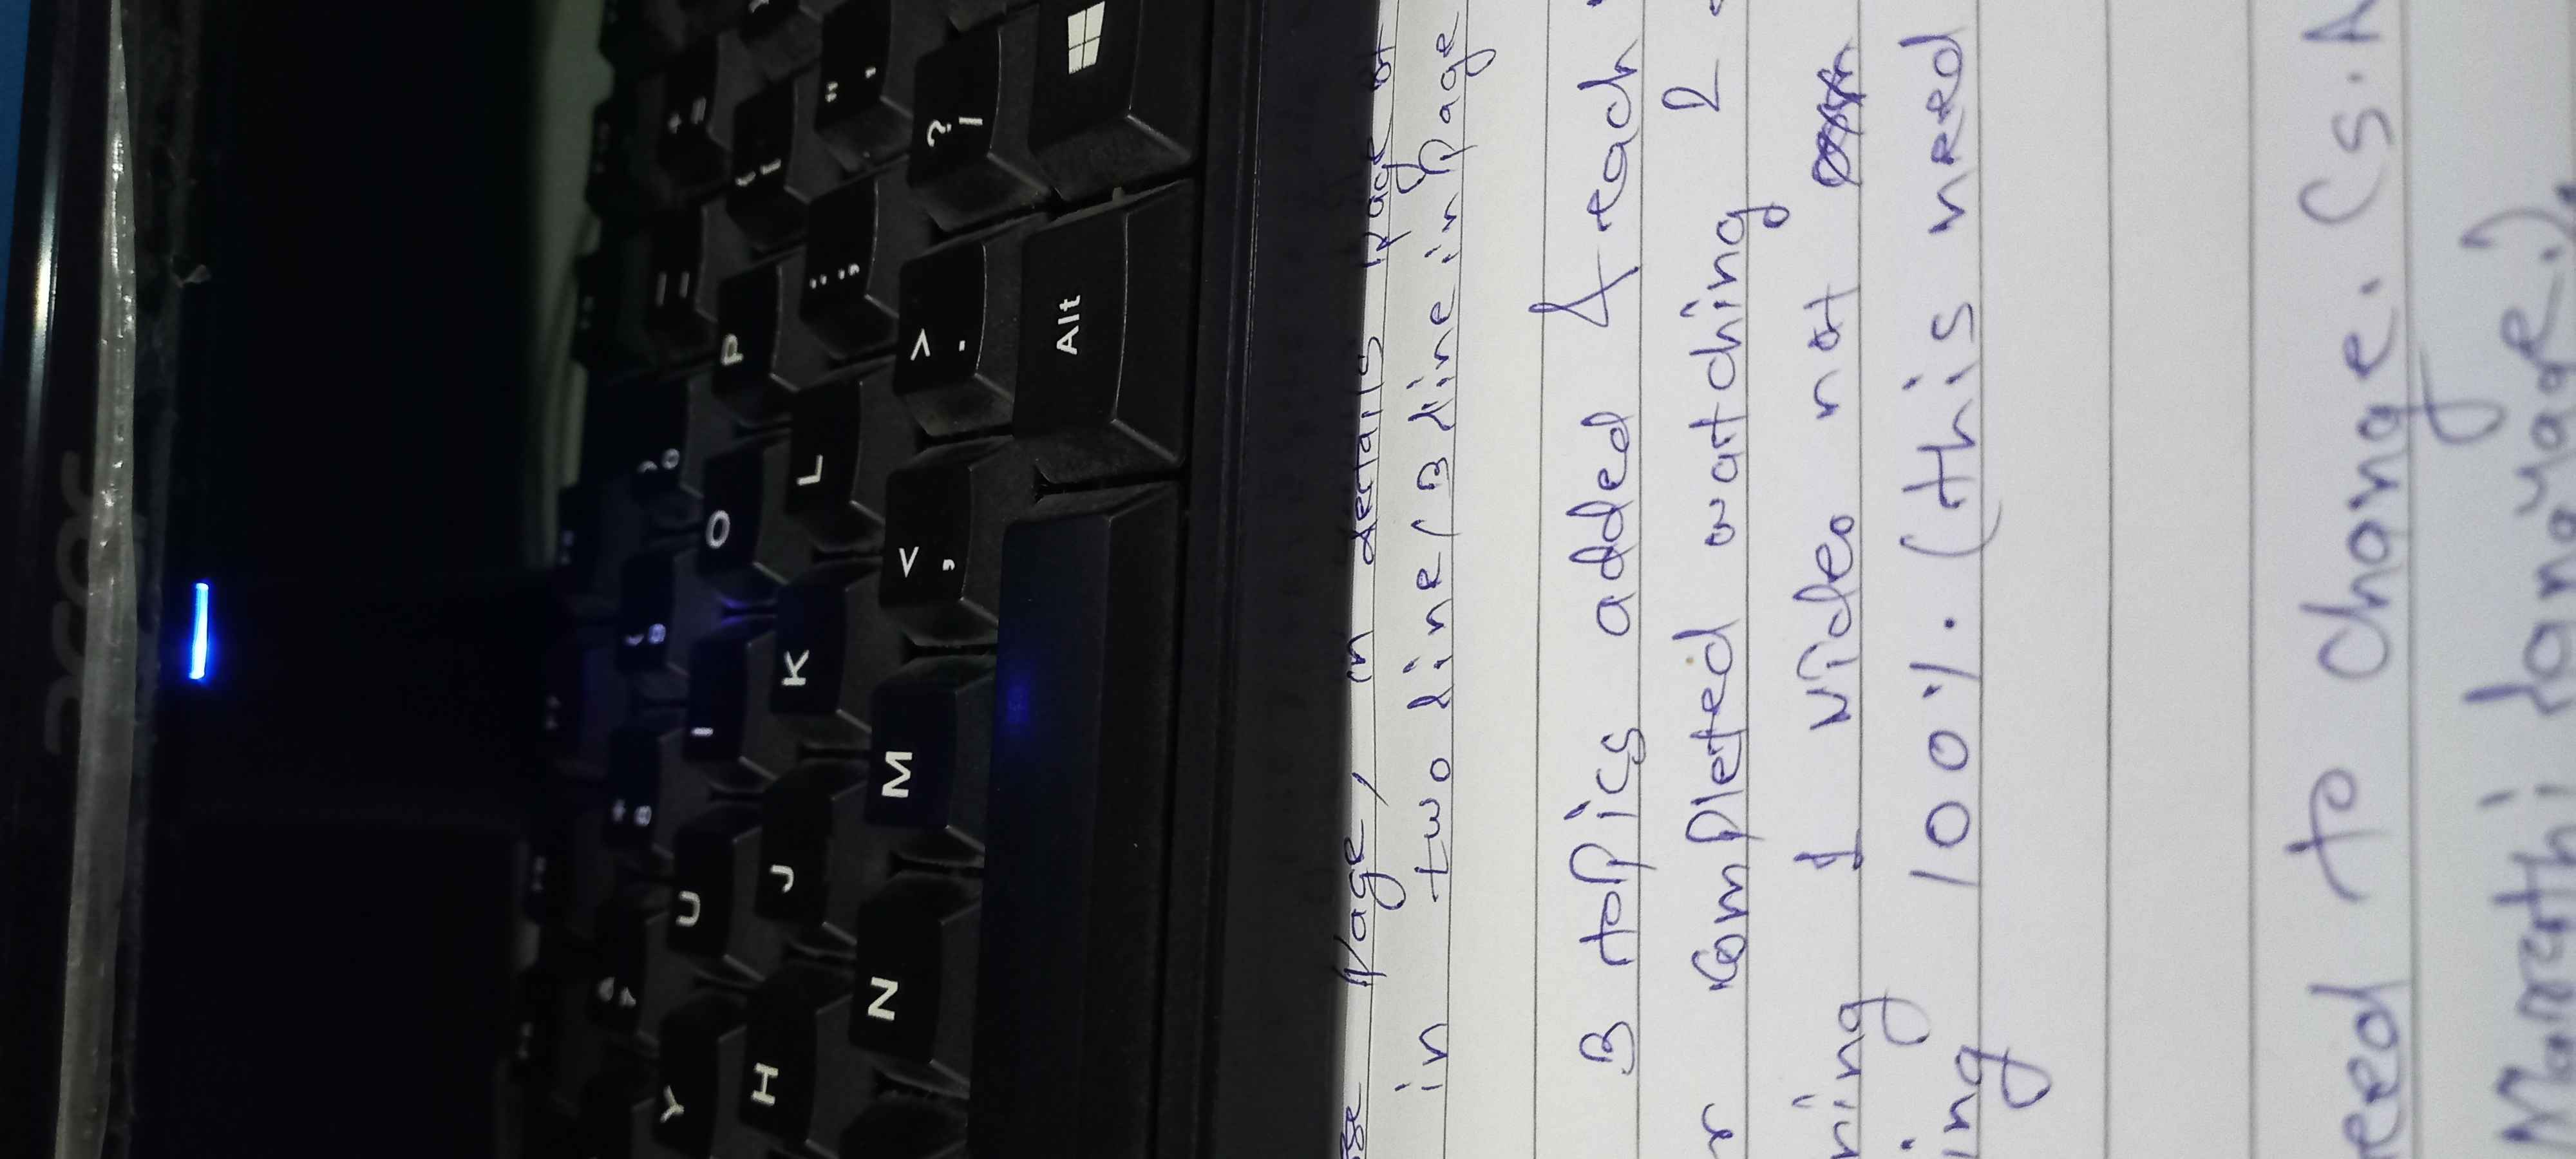 acer
F5 F6 F7 F8 F9 F10
& 7 * 8 ( 9 ) 0 — - + =
Y U I O P { [
H J K L : ; " '
N M < , > . ? /
Alt
se Page, in details page of
in two line/3 line in Page
3 topics added & each
r completed watching 2
ring 1 video not
ing 100%. (this need
eed to change. (S.A
Marathi language.).